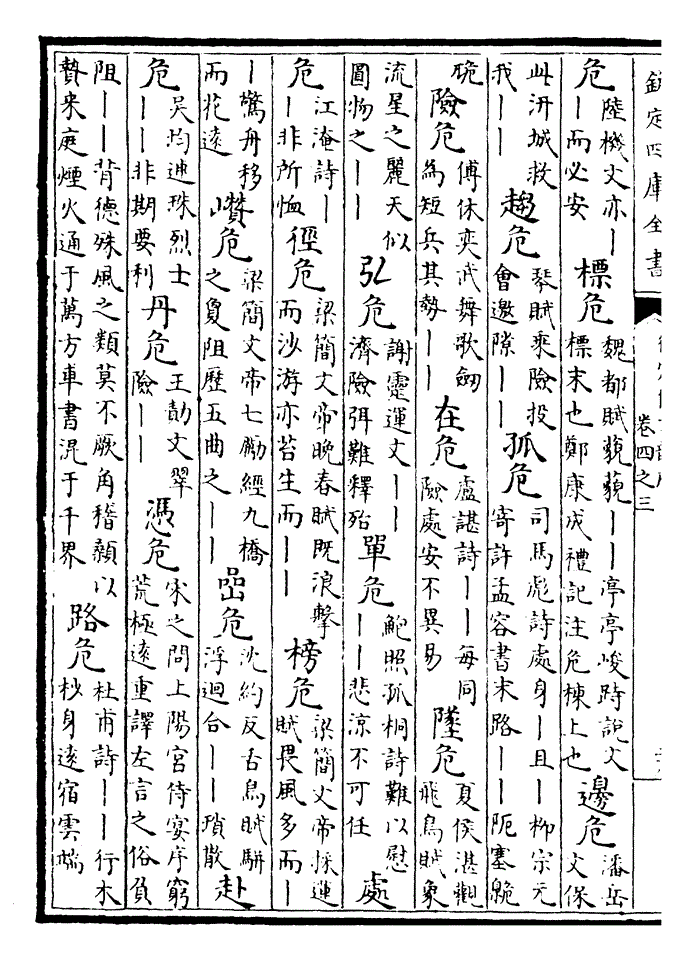 欽定四庫全書
卷四之三
危陸機文亦丨丨而必安標危魏都賦藐藐丨丨亭亭峻跱說文標末也鄭康成禮記注危棟上也邊危潘岳文保
此汧城救我丨丨趨危琴賦乘險投會邀隙丨丨孤危司馬彪詩處身丨且丨柳宗元寄許孟容書末路丨丨阨塞臲
硊險危傅休奕武舞歌劔為短兵其勢丨丨在危盧諶詩丨丨每同險處安不異易墜危夏侯湛觀飛鳥賦象
流星之麗天似圓物之丨丨弘危謝靈運文丨丨濟險弭難釋殆單危鮑照孤桐詩難以慰丨丨悲涼不可任處
危江淹詩丨丨非所恤徑危梁簡文帝晚春賦既浪擊而沙游亦苔生而丨丨榜危梁簡文帝採蓮賦畏風多而丨
丨驚舟移而花遠巑危梁簡文帝七勵經九橋之夐阻歷五曲之丨丨嵒危沈約反舌鳥賦駢浮迴合丨丨瑣散赴
危吳均連珠烈士丨丨非期要利丹危王勃文翠險丨丨憑危宋之問上陽宮侍宴序窮荒極遠重譯左言之俗負
阻丨丨背德殊風之類莫不厥角稽顙以贄来庭煙火通于萬方車書混于千界路危杜甫詩丨丨行木杪身遠宿雲端